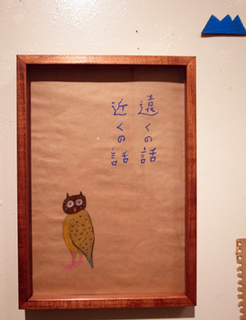 遠くの話
近くの話